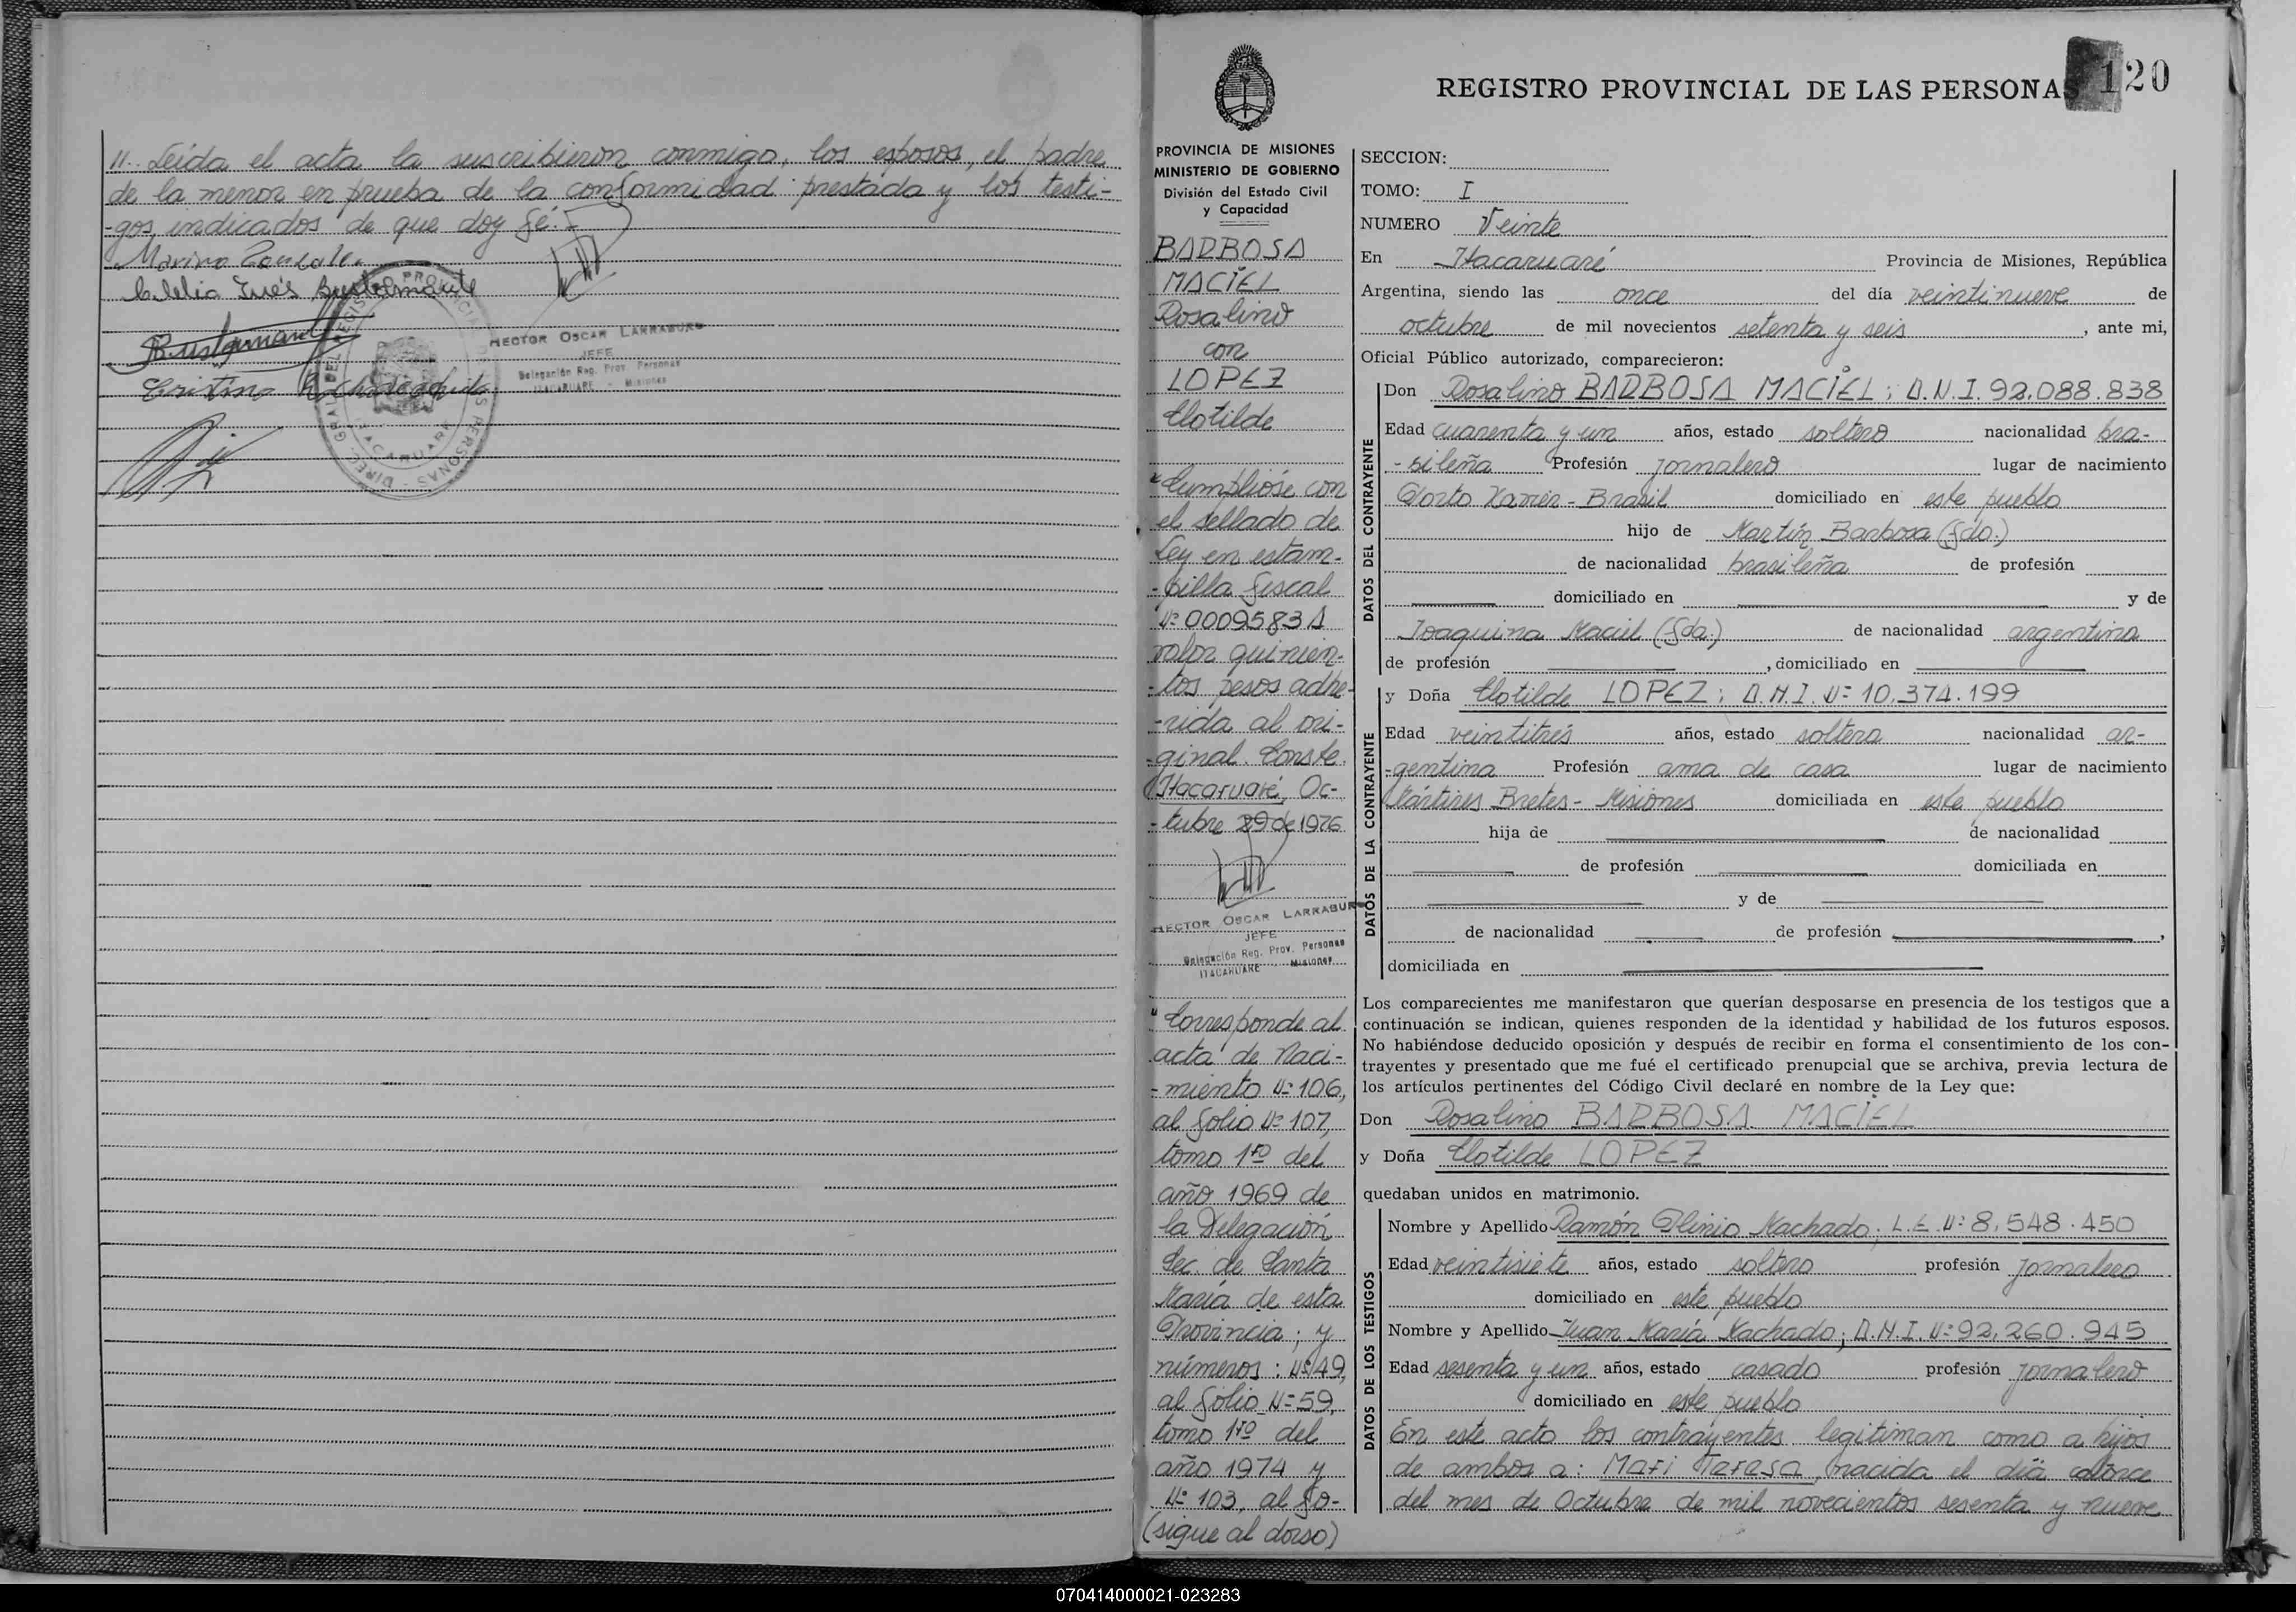 11.. Leída el acta la suscribieron conmigo, los esposos, el padre
de la menor en prueba de la conformidad prestada y los testi-
-gos indicados de que doy fé.-
Marino Gonzale
Clelia Inés Bustamante
Bustamante
Cristino
HECTOR OSCAR LARRABURU
JEFE
Delegación Reg. Prov. Personas
ITACARUARE - Misiones
REGISTRO PROVINCIAL DE LAS PERSONAS
120
PROVINCIA DE MISIONES
MINISTERIO DE GOBIERNO
División del Estado Civil
y Capacidad
BARBOSA
MACIEL
Rosalino
con
LOPEZ
Clotilde
"Cumplióse con
el sellado de
Ley en estam-
-pilla fiscal
Nº 0009583 A
valor quinien-
-tos pesos adhe-
-rida al ori-
-ginal. Conste.
Itacaruaré, Oc-
-tubre 29 de 1976
HECTOR OSCAR LARRABURU
JEFE
Delegación Reg. Prov. Personas
ITACARUARE Misiones
"Corresponde al
acta de Naci-
-miento Nº 106,
al folio Nº 107,
tomo 1ro del
año 1969 de
la Delegación
Sec. de Santa
María de esta
Provincia; y
números: Nº 49,
al folio Nº 59,
tomo 1ro del
año 1974 y
Nº 103, al fo-
(sigue al dorso)
SECCION:
TOMO: I
NUMERO Veinte
En Itacaruaré Provincia de Misiones, República
Argentina, siendo las once del día veintinueve de
octubre de mil novecientos setenta y seis, ante mi,
Oficial Público autorizado, comparecieron:
DATOS DEL CONTRAYENTE
Don Rosalino BARBOSA MACIEL; D.N.I. 92.088.838
Edad cuarenta y un años, estado soltero nacionalidad bra-
-sileña Profesión jornalero lugar de nacimiento
Porto Xavier - Brasil domiciliado en este pueblo
hijo de Martín Barbosa (fdo.)
de nacionalidad brasileña de profesión
domiciliado en y de
Joaquina Maciel (fda.) de nacionalidad argentina
de profesión , domiciliado en
DATOS DE LA CONTRAYENTE
y Doña Clotilde LOPEZ; D.N.I. Nº 10.374.199
Edad veintitrés años, estado soltera nacionalidad ar-
-gentina Profesión ama de casa lugar de nacimiento
Mártires Bretes - Misiones domiciliada en este pueblo
hija de de nacionalidad
de profesión domiciliada en
y de
de nacionalidad de profesión ,
domiciliada en
Los comparecientes me manifestaron que querían desposarse en presencia de los testigos que a
continuación se indican, quienes responden de la identidad y habilidad de los futuros esposos.
No habiéndose deducido oposición y después de recibir en forma el consentimiento de los con-
trayentes y presentado que me fué el certificado prenupcial que se archiva, previa lectura de
los artículos pertinentes del Código Civil declaré en nombre de la Ley que:
Don Rosalino BARBOSA MACIEL
y Doña Clotilde LOPEZ
quedaban unidos en matrimonio.
DATOS DE LOS TESTIGOS
Nombre y Apellido Ramón Plinio Machado; L.E. Nº 8.548.450
Edad veintisiete años, estado soltero profesión jornalero
domiciliado en este pueblo
Nombre y Apellido Juan María Machado; D.N.I. Nº 92.260.945
Edad sesenta y un años, estado casado profesión jornalero
domiciliado en este pueblo
En este acto los contrayentes legitiman como a hijos
de ambos a: Mari Teresa, nacida el día catorce
del mes de Octubre de mil novecientos sesenta y nueve
070414000021-023283